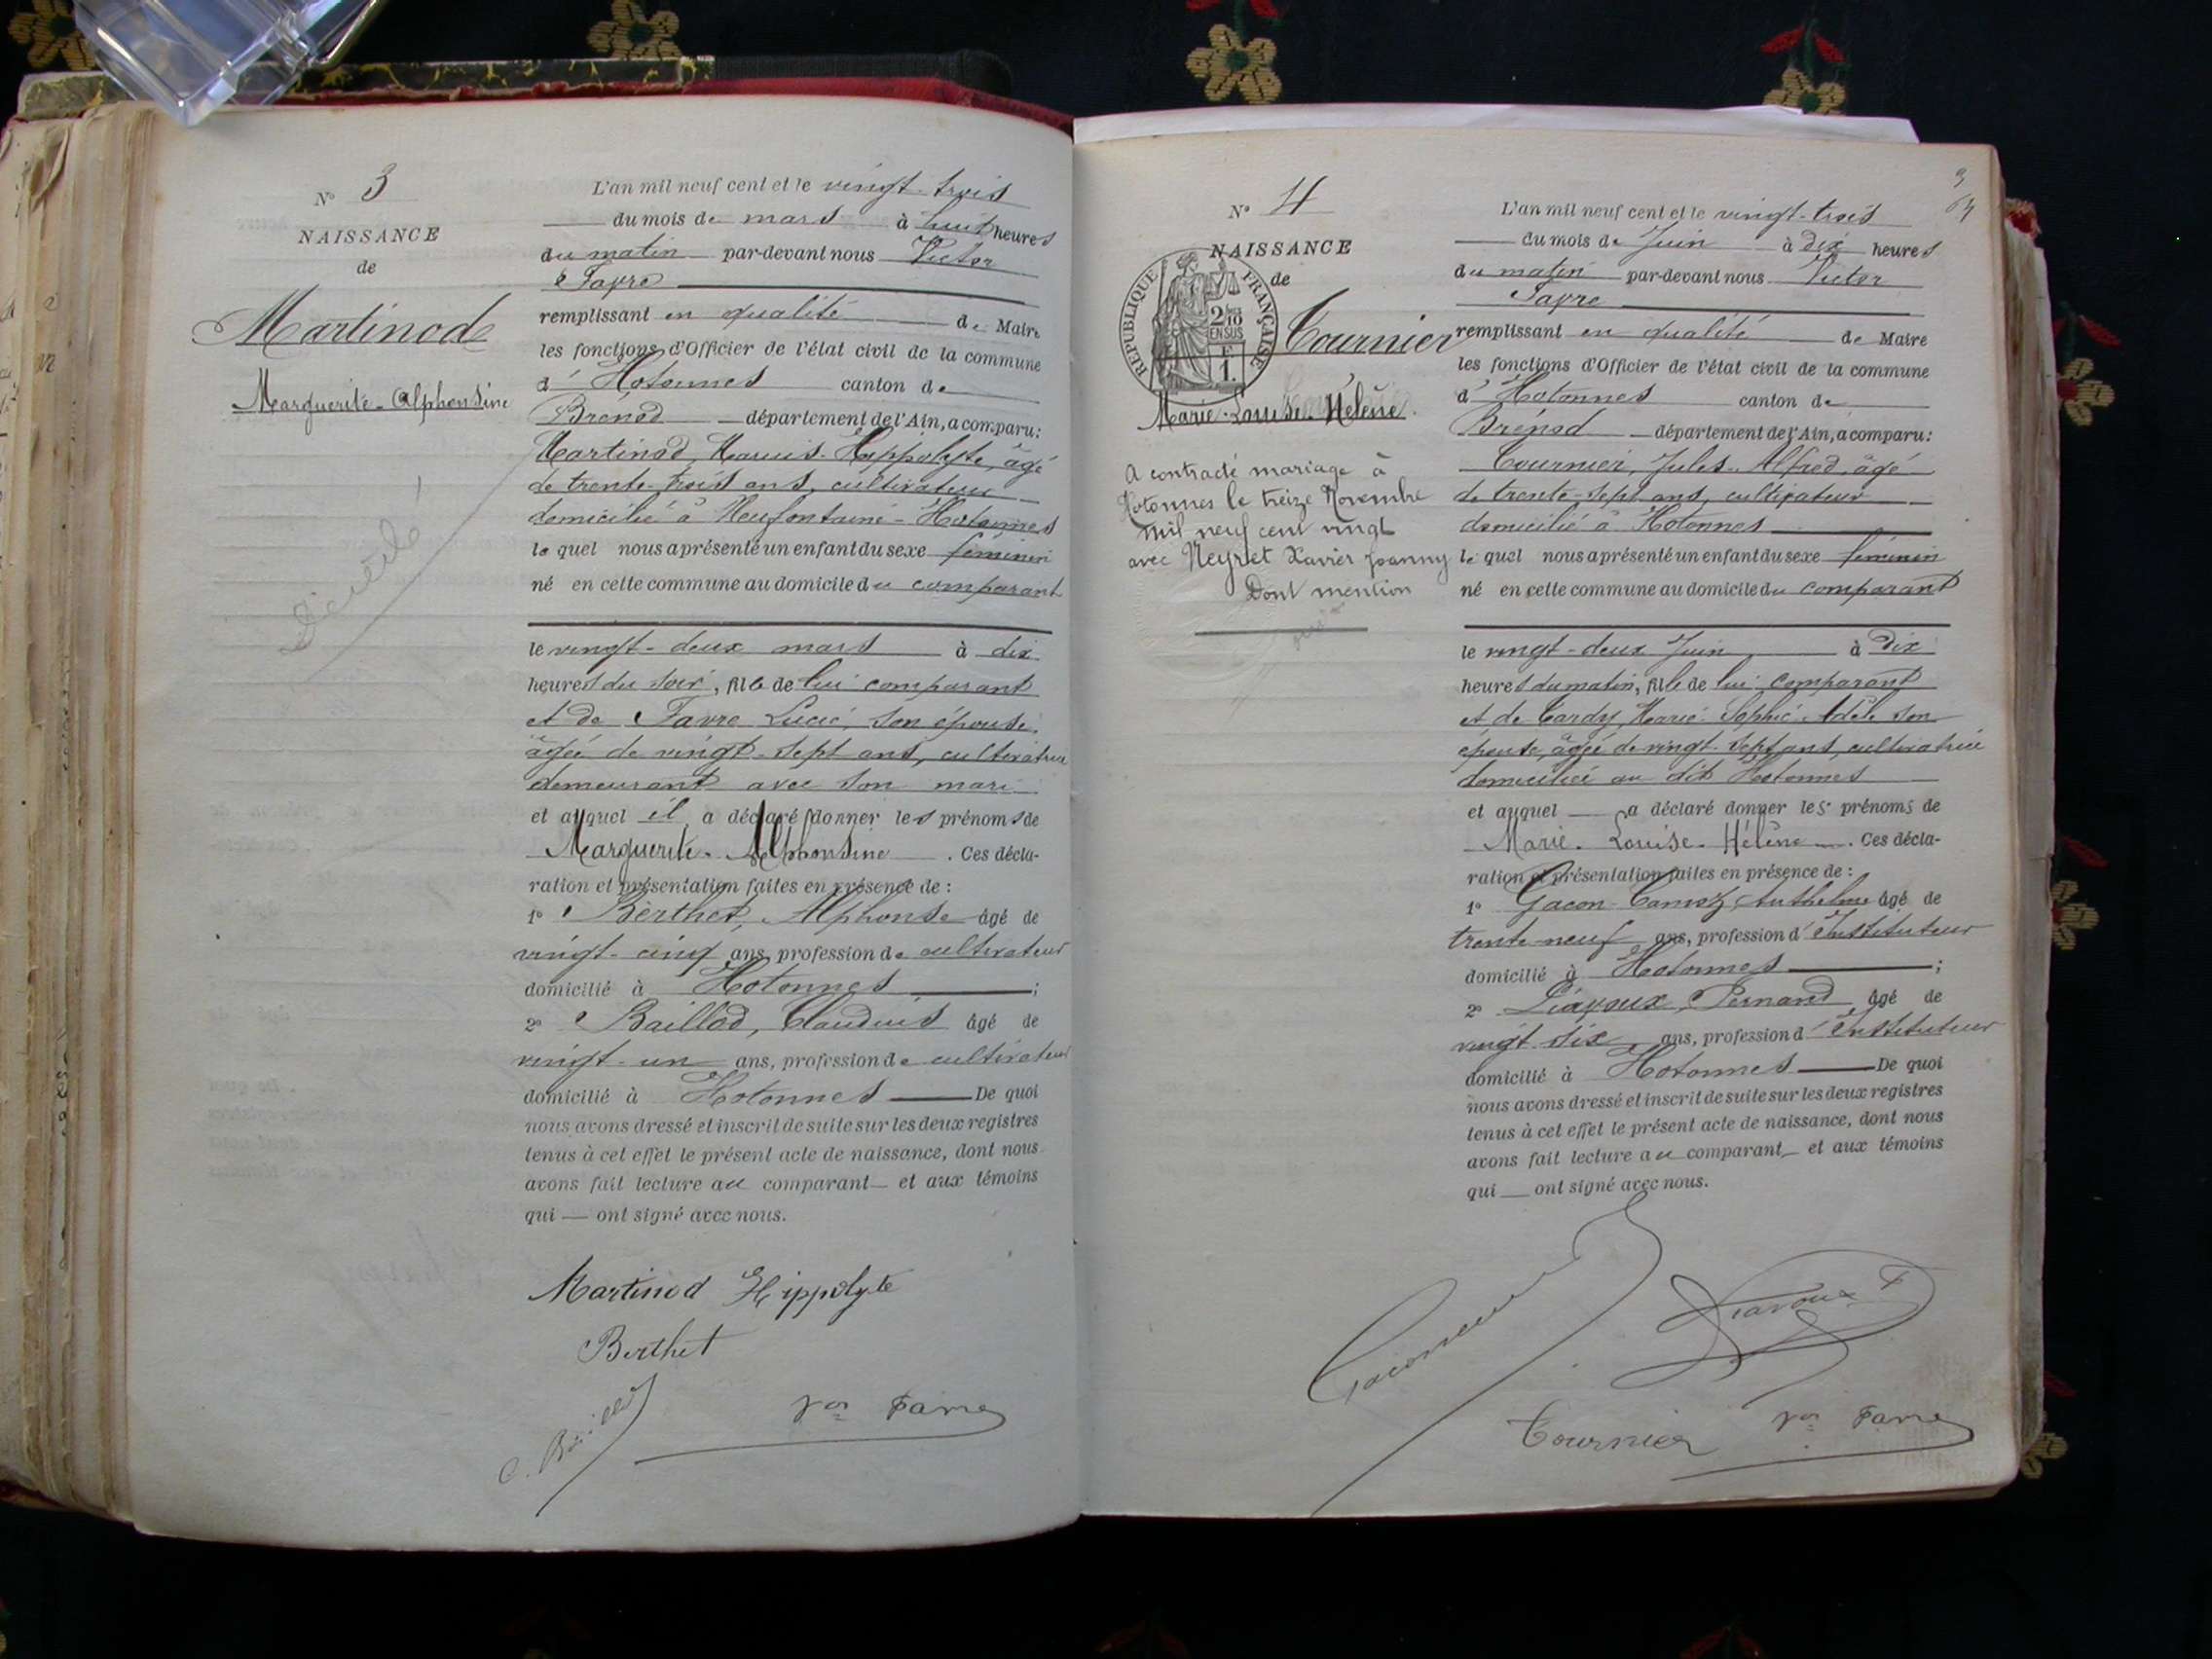 N° 3
NAISSANCE
de
Martinod
Marguerite-Alphonsine
Décédé
L'an mil neuf cent et le vingt-trois
du mois de mars à huit heures
du matin par-devant nous Victor
Favre
remplissant en qualité de Maire
les fonctions d'Officier de l'état civil de la commune
d' Hotonnes canton de
Brénod département de l'Ain, a comparu:
Martinod, Marius-Hippolyte, âgé
de trente-trois ans, cultivateur
domicilié à Neufontaine-Hotonnes
lequel nous a présenté un enfant du sexe féminin
né en cette commune au domicile du comparant
le vingt-deux mars à dix
heures du soir, fille de lui comparant
et de Favre Lucie, son épouse,
âgée de vingt-sept ans, cultivatrice
demeurant avec son mari
et auquel il a déclaré donner les prénoms de
Marguerite-Alphonsine. Ces décla-
ration et présentation faites en présence de :
1° Berthet, Alphonse âgé de
vingt-cinq ans, profession de cultivateur
domicilié à Hotonnes ;
2° Baillod, Claudius âgé de
vingt-un ans, profession de cultivateur
domicilié à Hotonnes De quoi
nous avons dressé et inscrit de suite sur les deux registres
tenus à cet effet le présent acte de naissance, dont nous
avons fait lecture au comparant et aux témoins
qui ont signé avec nous.
Martinod Hippolyte
Berthet
C. Baillod
Vor Favre
3
64
N° 4
NAISSANCE
de
REPUBLIQUE FRANÇAISE
2/10
EN SUS
F
1.
Tournier
Marie-Louise-Hélène.
A contracté mariage à
Hotonnes le treize Novembre
mil neuf cent vingt
avec Neyret Xavier Joanny
Dont mention
L'an mil neuf cent et le vingt-trois
du mois de Juin à dix heures
du matin par-devant nous Victor
Favre
remplissant en qualité de Maire
les fonctions d'Officier de l'état civil de la commune
d' Hotonnes canton de
Brénod département de l'Ain, a comparu:
Tournier, Jules-Alfred, âgé
de trente-sept ans, cultivateur
domicilié à Hotonnes
lequel nous a présenté un enfant du sexe féminin
né en cette commune au domicile du comparant
le vingt-deux Juin à dix
heures du matin, fille de lui comparant
et de Tardy, Marie-Sophie-Adèle son
épouse, âgée de vingt-sept ans, cultivatrice
domiciliée au dit Hotonnes
et auquel a déclaré donner les prénoms de
Marie-Louise-Hélène. Ces décla-
ration et présentation faites en présence de :
1° Gacon-Camoz, Anthelme âgé de
trente-neuf ans, profession d'Instituteur
domicilié à Hotonnes ;
2° Liavoux, Fernand, âgé de
vingt-six ans, profession d'Instituteur
domicilié à Hotonnes De quoi
nous avons dressé et inscrit de suite sur les deux registres
tenus à cet effet le présent acte de naissance, dont nous
avons fait lecture au comparant et aux témoins
qui ont signé avec nous.
Liavoux F
Tournier
Vor Favre